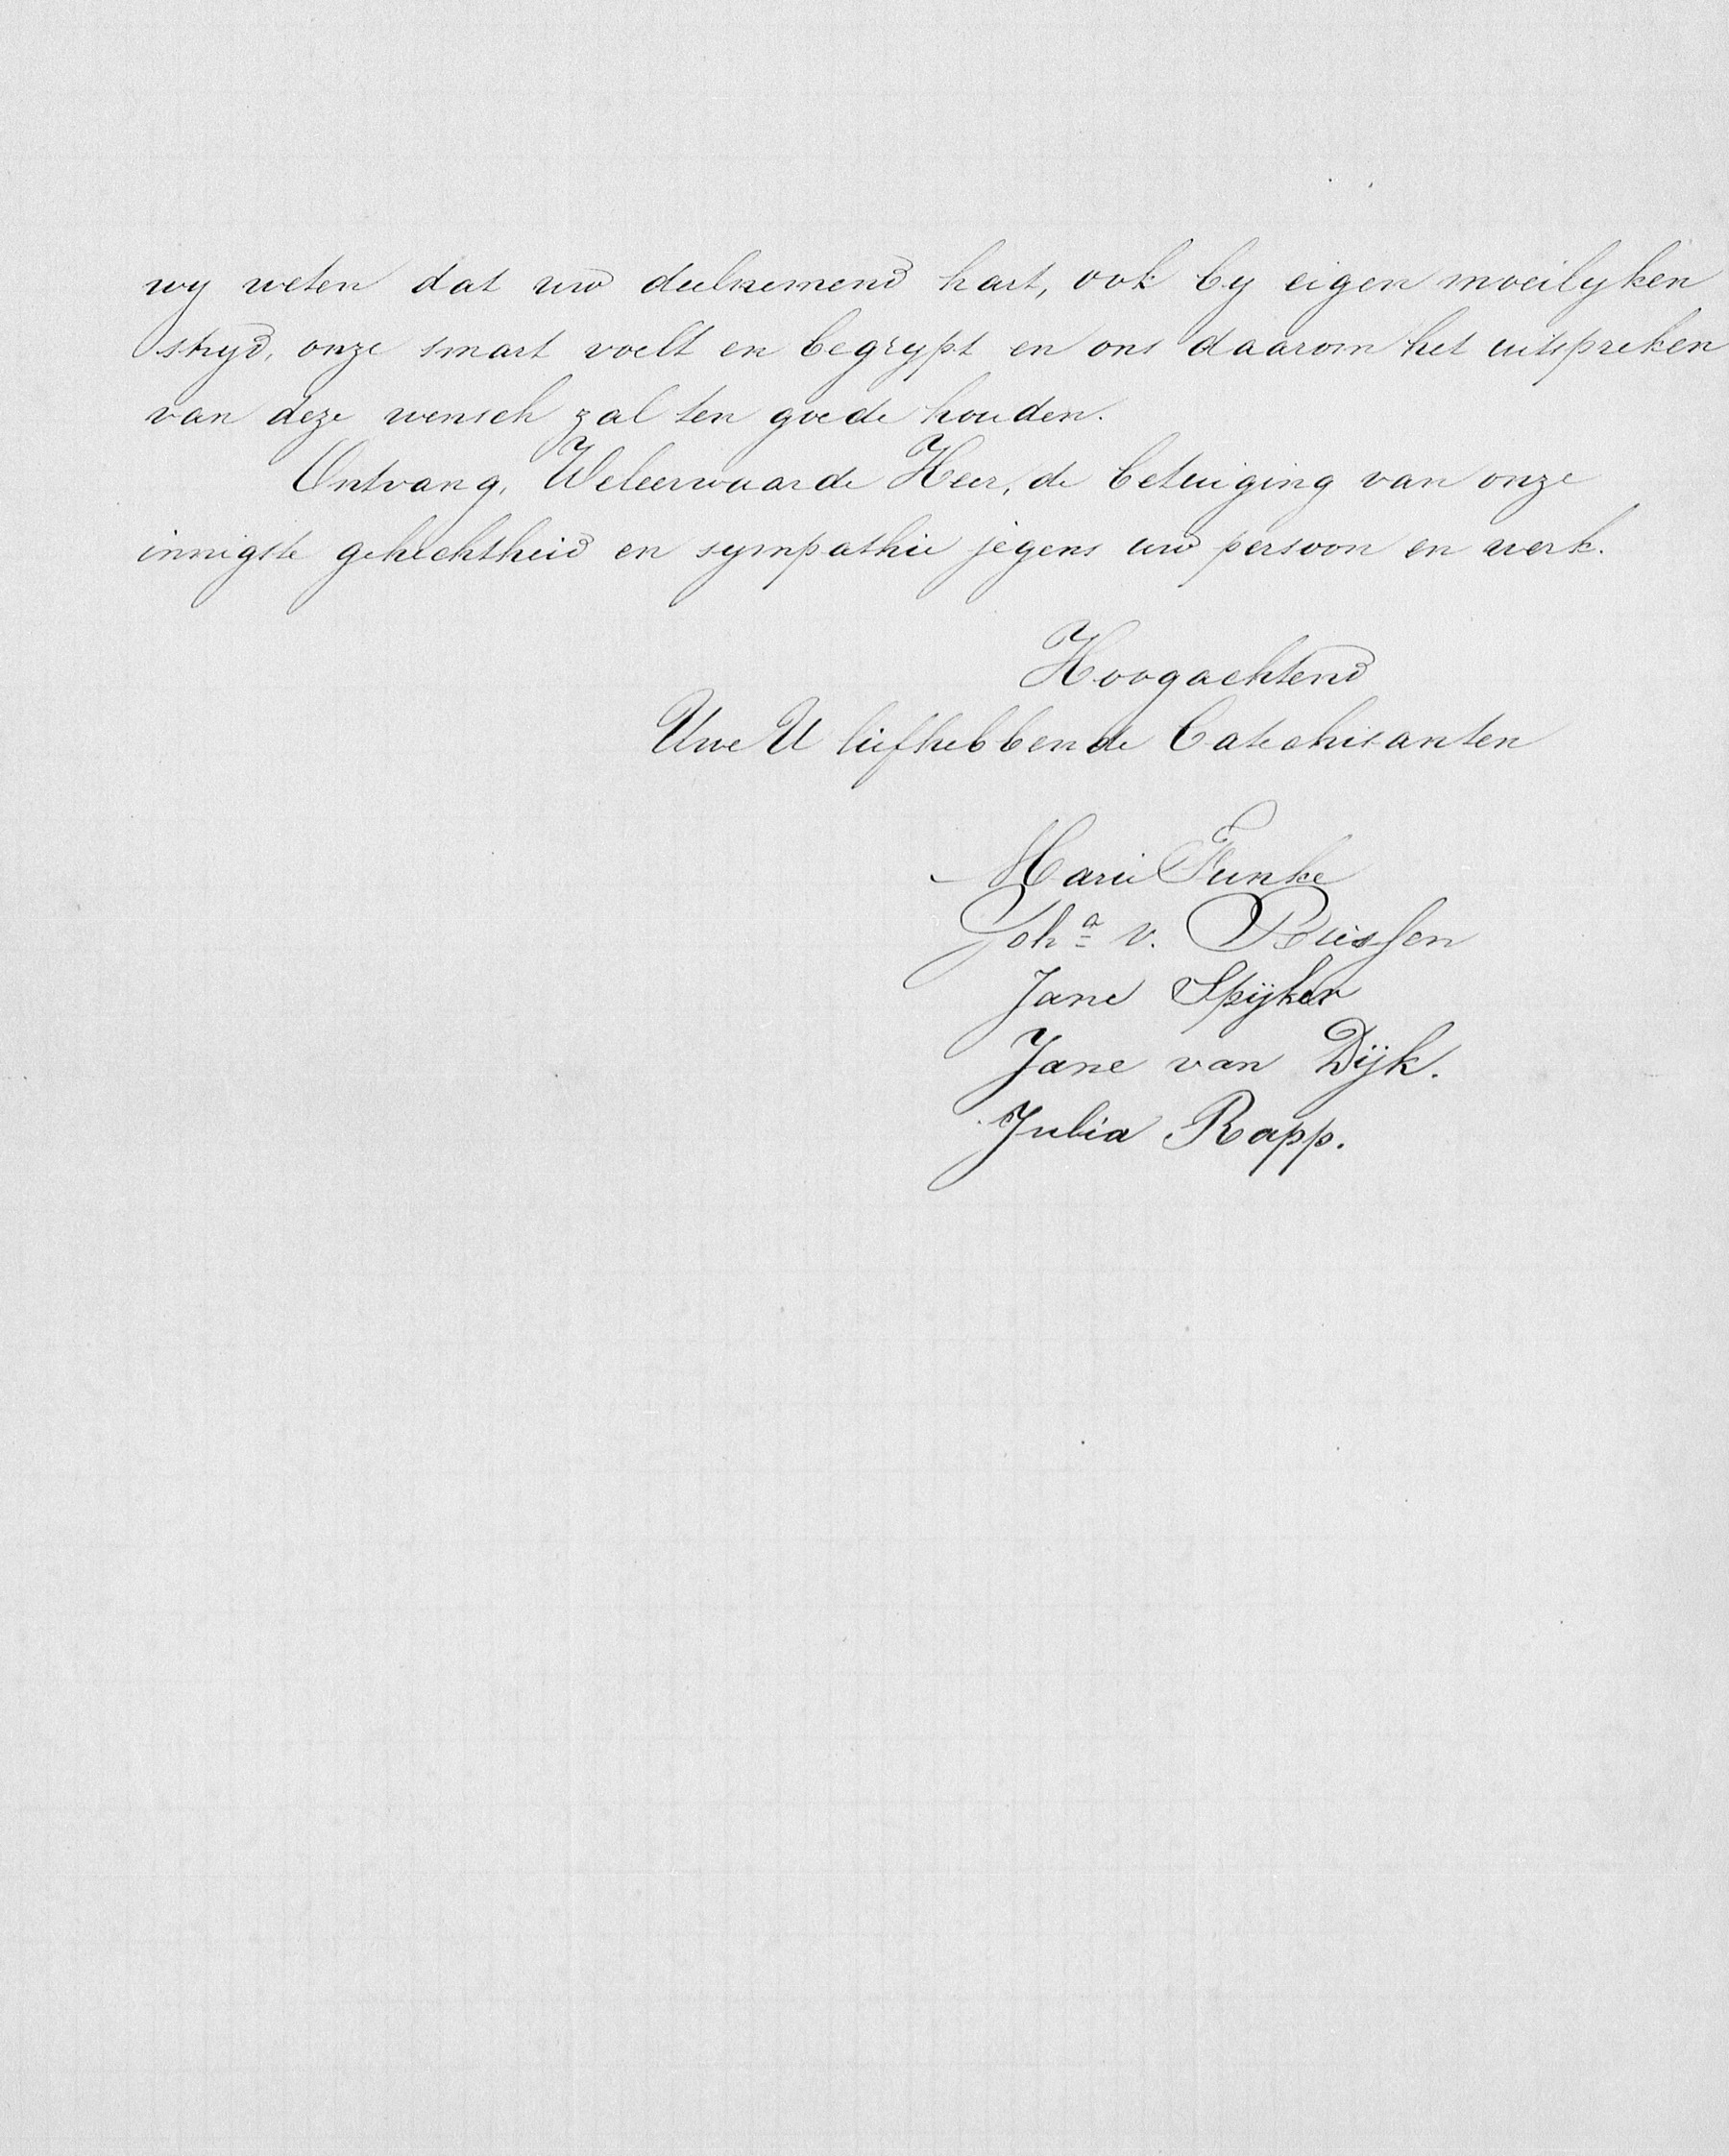 wy weten dat uw deelnemend hart, ook by eigen moeilyken
stryd, onze smart voelt en begrypt en ons daarom het uitspreken
van deze wensch zal ten goede houden.
Ontvang, Weleerwaarde Heer, de betuiging van onze
innigste gehechtheid en sympathie jegens uw persoon en werk.
Hoogachtend
Uwe U liefhebbende Catechisanten
Marie Funke
Joha v.
Jane Spijker
Jane van Dijk.
Julia Rapp.